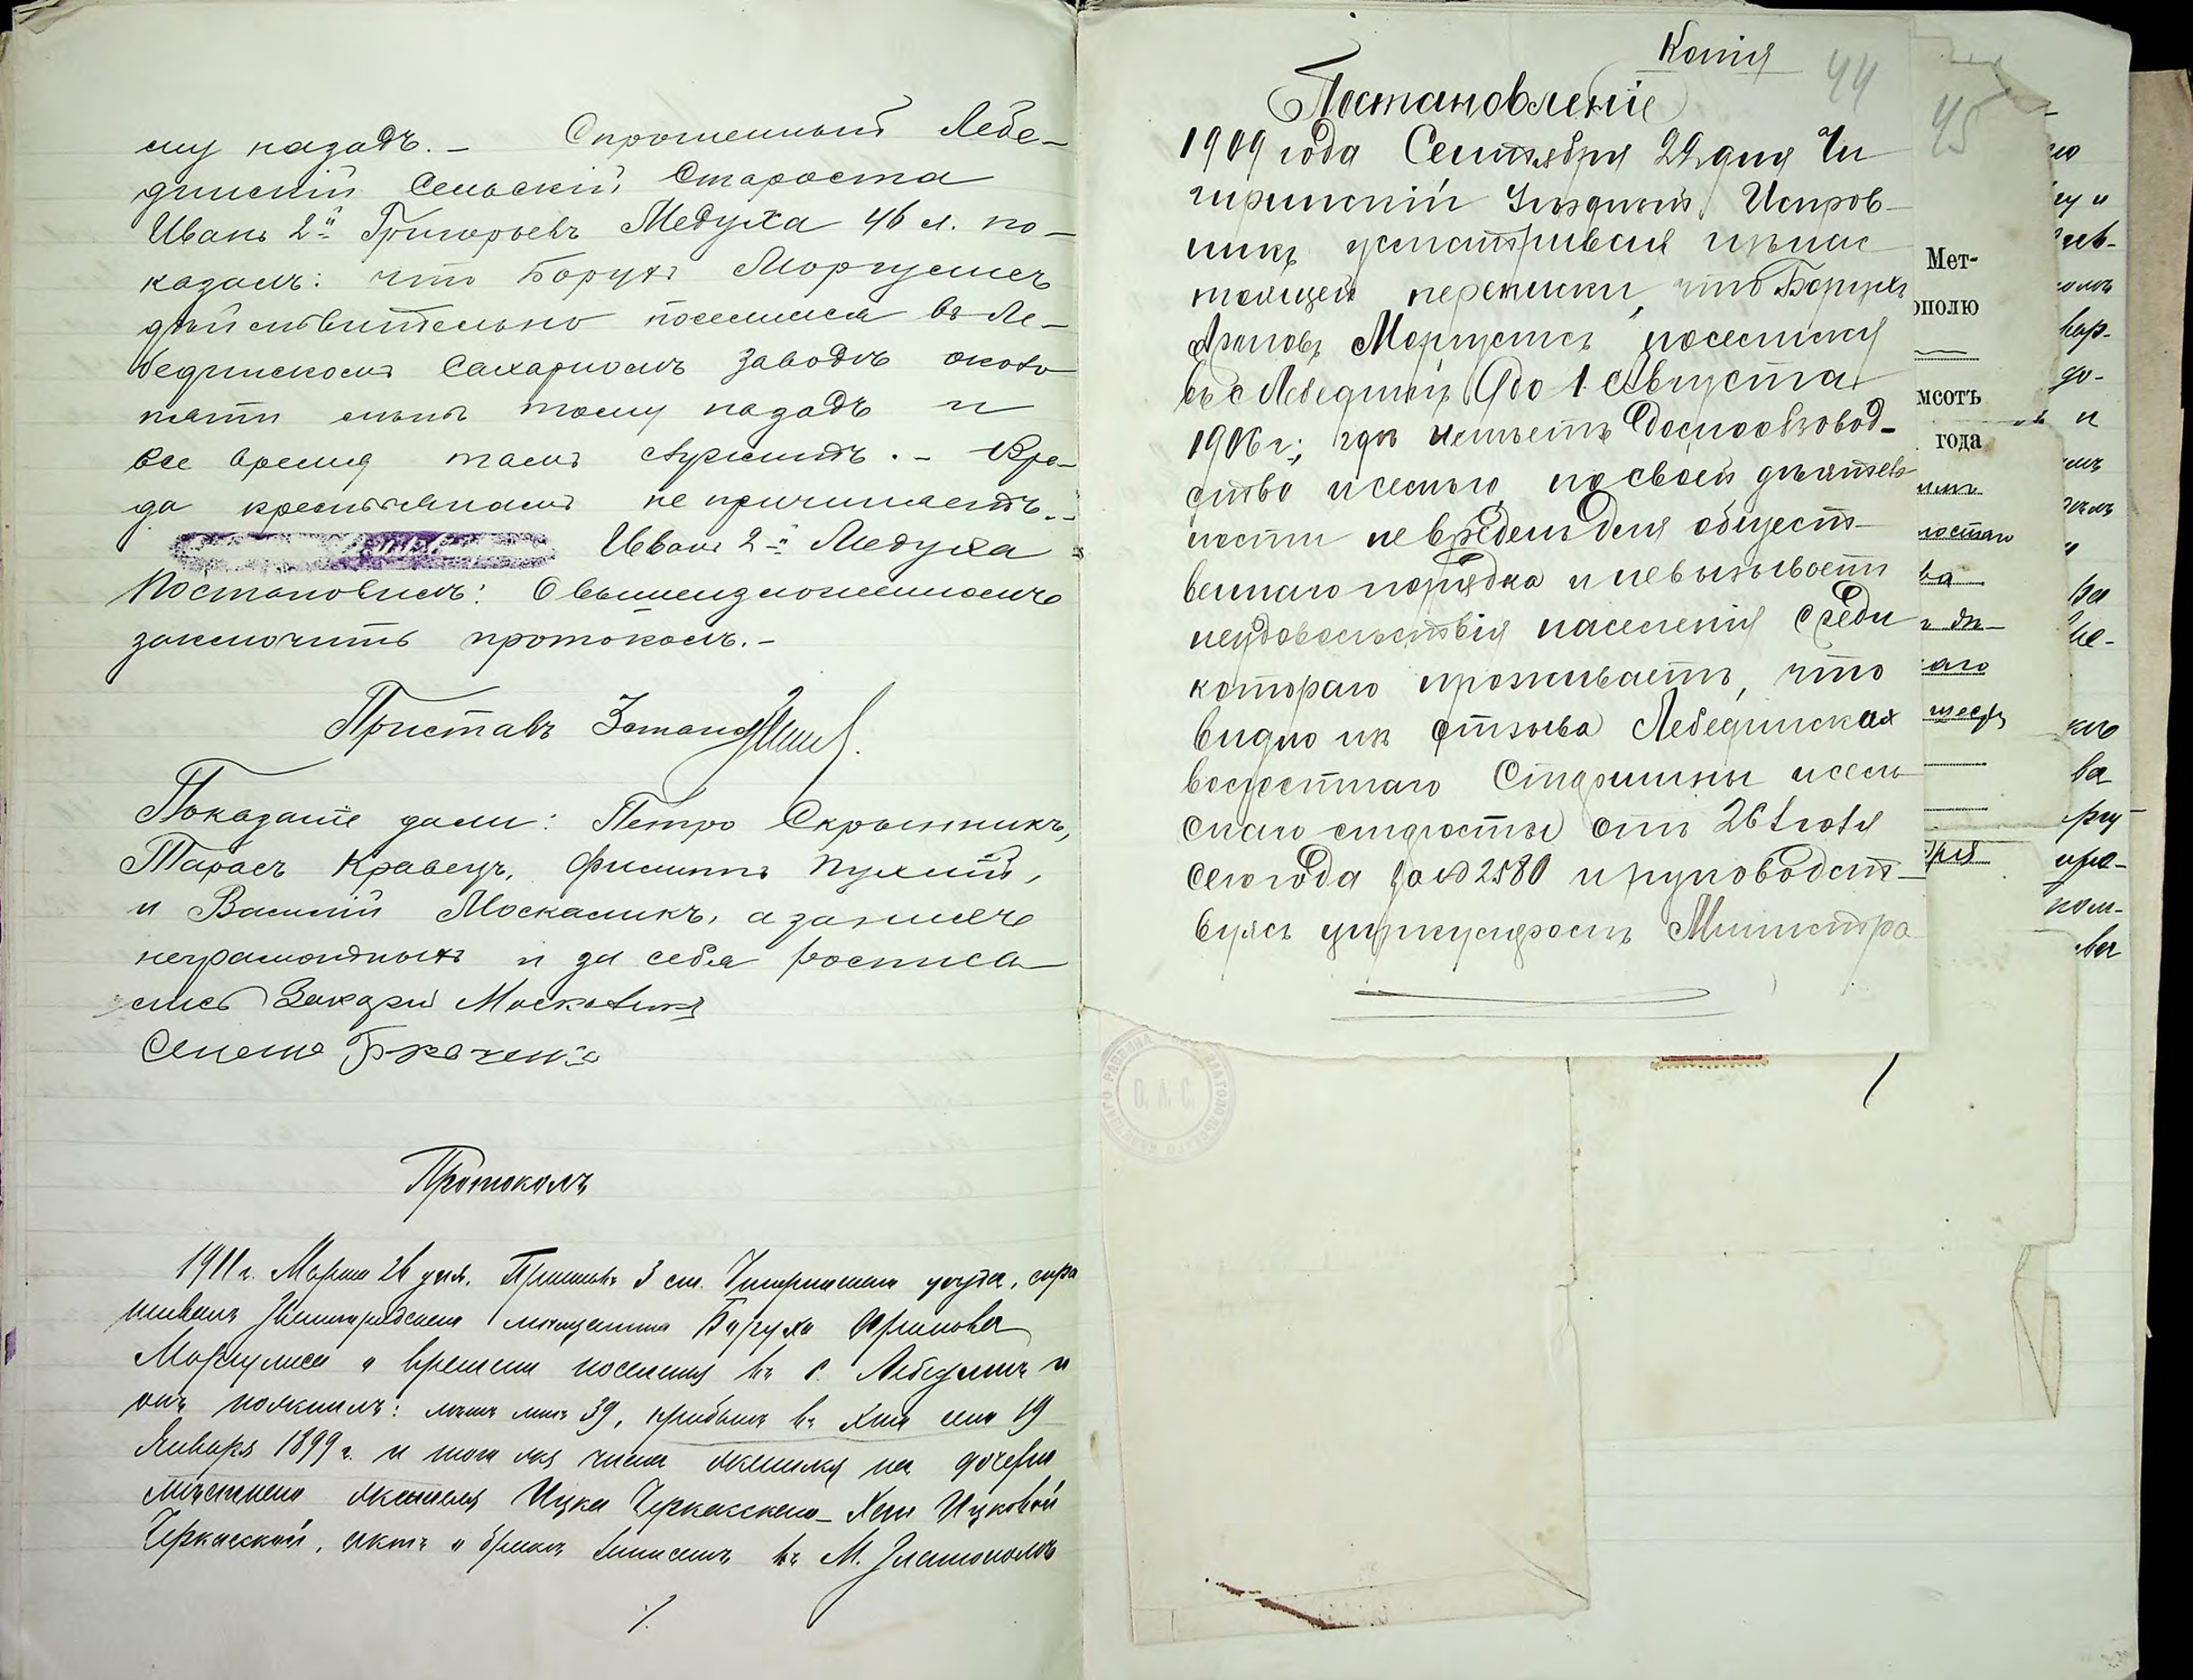 му назадъ. – Спрошенный Лебе-
динскій Сельскій Староста
Иванъ 2й Григорьевъ Медуха 46 л. по-
казалъ: что Борухъ Моргулисъ
дѣйствительно поселился въ Ле-
бединскомъ Сахарномъ заводѣ около
пяти лѣтъ тому назадъ и
все время тамъ служитъ. – Вре-
да крестьянамъ не причиняетъ. –
Иванъ 2й Медуха
Постановилъ: О вышеизложенномъ
заключить протоколъ. –
Приставъ
Показаніе дали: Петро Скрыпникъ,
Тарасъ Кравецъ, Филиппъ Пухтій,
и Василій Москаликъ, а за нихъ
неграмотныхъ и за себя росписа-
лись Захарій Москаликъ
Семенъ Ткаченко
Протоколъ
1911 г. Марта 26 дня. Приставъ 3 ст. Чигиринскаго уѣзда, спра
шивалъ Звенигородскаго мѣщанина Боруха Фроимова
Моргулиса о времени поселенія въ с. Лебединѣ и
онъ пояснилъ: мнѣ лѣтъ 39, прибылъ въ это село 19
Января 1899 г. и того же числа женился на дочери
мѣстнаго жителя Ицка Черкасскаго – Хаи Ицковой
Черкасской, актъ о бракѣ записанъ въ М. Златополѣ
./.
Копія
44
Постановленіе
1909 года Сентября 22 дня Чи
гиринскій Уѣздный Исправ-
никъ усматривая изъ нас
тоящей переписки, что Борухъ
Фроимовъ Моргулисъ поселился
въ с Лебединѣ до 1 Августа
1906 г; гдѣ имѣетъ домообзавод-
ство и семью, по своей дѣятель
ности не вреденъ для общест-
веннаго порядка и не вызываетъ
неудовольствія населенія среди
котораго проживаетъ, что
видно изъ отзыва Лебединскаго
волостнаго Старшины и сель
скаго старосты отъ 26 Іюля
сего года за № 2580 и руководст-
вуясь циркуляромъ Министра
45
Мет-
ополю
мсотъ
года
О. Л. С.